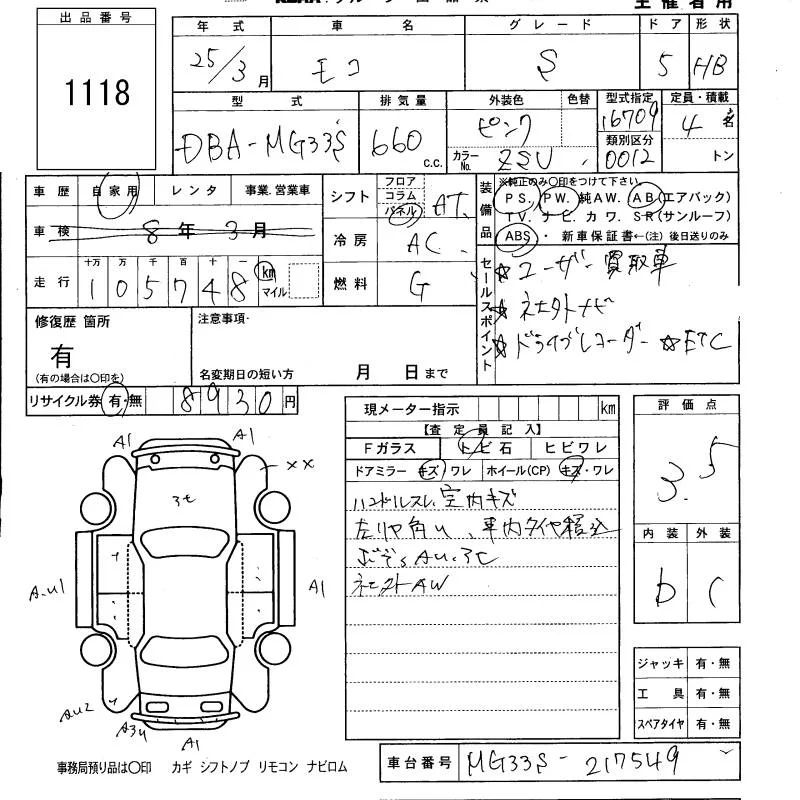 出品番号
1118
主催者用
年式 車名 グレード ドア 形状
25/3月 モコ S 5 HB
型式 排気量 外装色 色替 型式指定 定員・積載
DBA-MG33S 660 c.c. ピンク 16709 4名
類別区分
カラーNo. ZSU 0012 トン
車歴 自家用 レンタ 事業.営業車
車検 8年3月
走行 十万 万 千 百 十 一
105748 km マイル
シフト フロア コラム パネル AT
冷房 AC
燃料 G
装備品
※純正のみ〇印をつけて下さい。
PS. PW. 純AW. AB(エアバック)
TV. ナビ. カワ. SR(サンルーフ)
ABS・ 新車保証書←(注)後日送りのみ
セールスポイント
☆ユーザー買取車
☆社外ナビ
☆ドライブレコーダー ☆ETC
修復歴 箇所
有
(有の場合は〇印を)
注意事項・
名変期日の短い方 月 日まで
リサイクル券 有・無 8930円
現メーター指示 km
【査定員記入】
Fガラス トビ石 ヒビワレ
ドアミラー キズ ワレ ホイール(CP) キズ・ワレ
ハンドルスレ、室内キズ
左リヤ角U、車内タイヤ積込
AU.3C
社外AW
評価点
3.5
内装 外装
b C
ジャッキ 有・無
工具 有・無
スペアタイヤ 有・無
A1 A1
××
3C
A.U1 A1
AU2
A3U
A1
事務局預り品は〇印 カギ シフトノブ リモコン ナビロム
車台番号 MG33S-217549